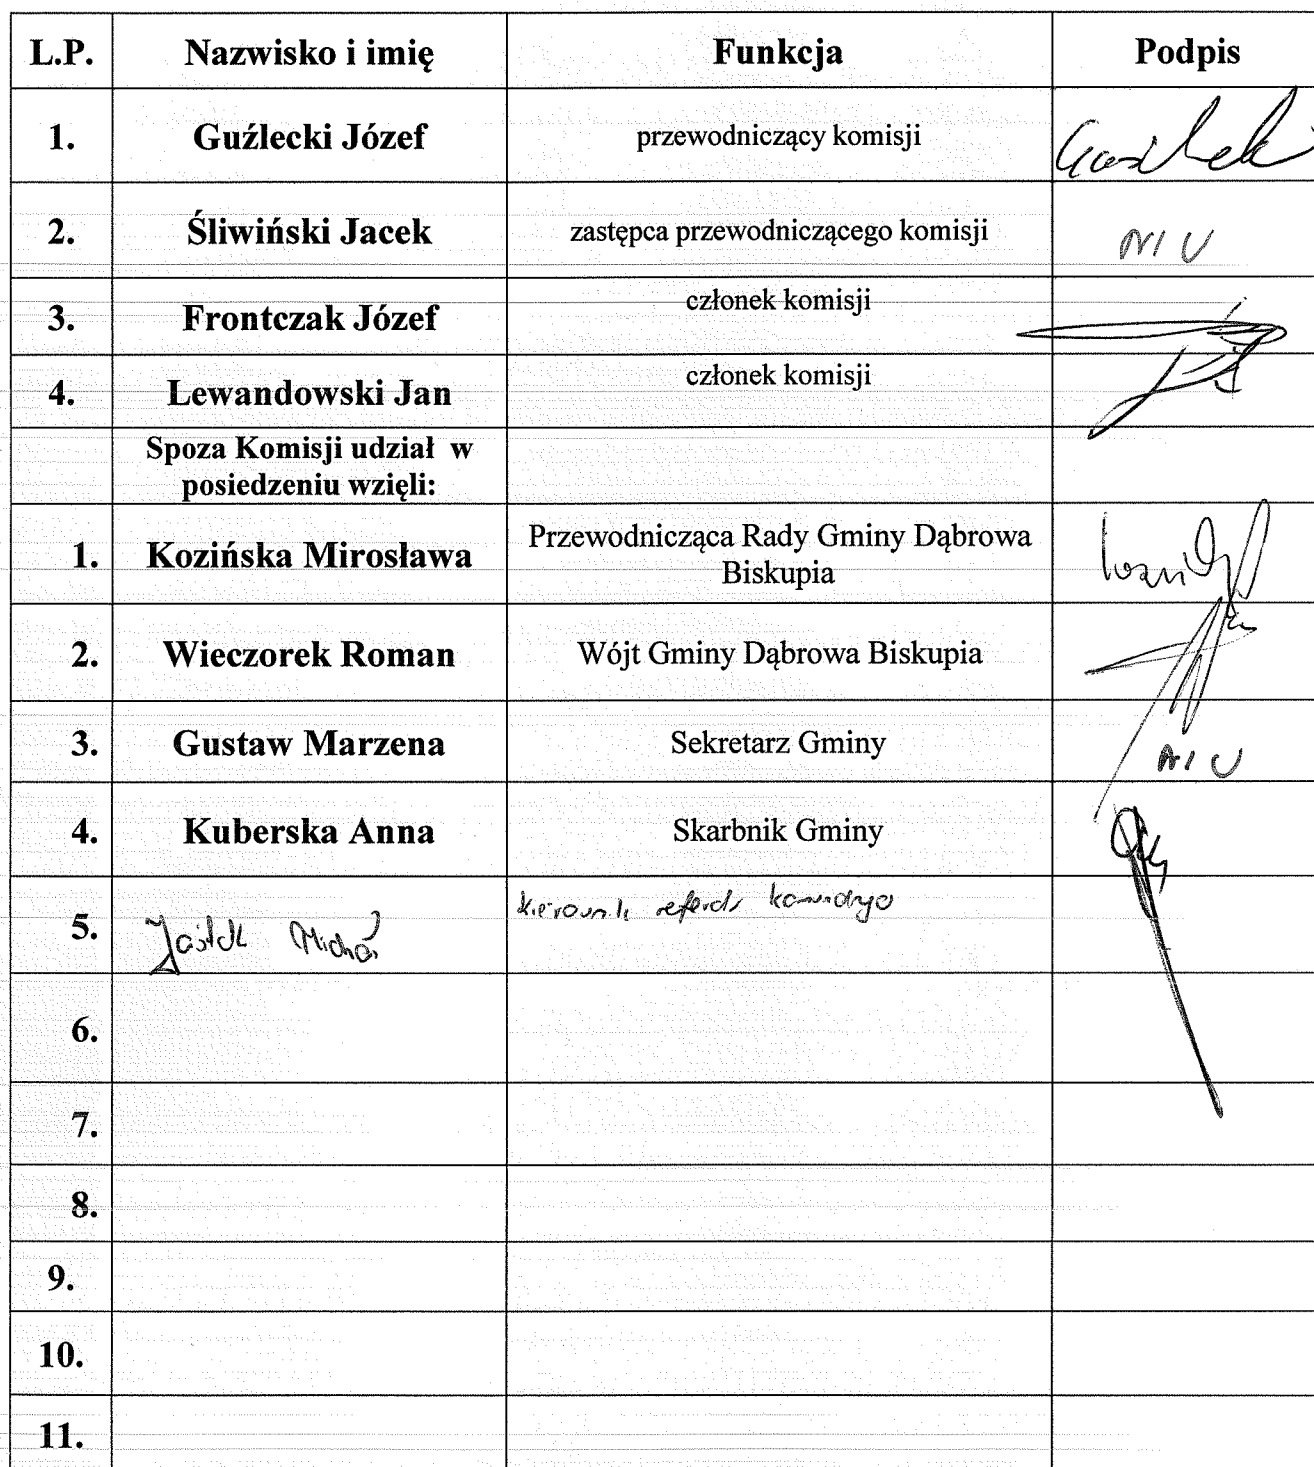 L.P. Nazwisko i imię Funkcja Podpis
1. Guźlecki Józef przewodniczący komisji
2. Śliwiński Jacek zastępca przewodniczącego komisji
3. Frontczak Józef członek komisji
4. Lewandowski Jan członek komisji
Spoza Komisji udział w
posiedzeniu wzięli:
1. Kozińska Mirosława Przewodnicząca Rady Gminy Dąbrowa
Biskupia
2. Wieczorek Roman Wójt Gminy Dąbrowa Biskupia
3. Gustaw Marzena Sekretarz Gminy
4. Kuberska Anna Skarbnik Gminy
5. Michał
6.
7.
8.
9.
10.
11.